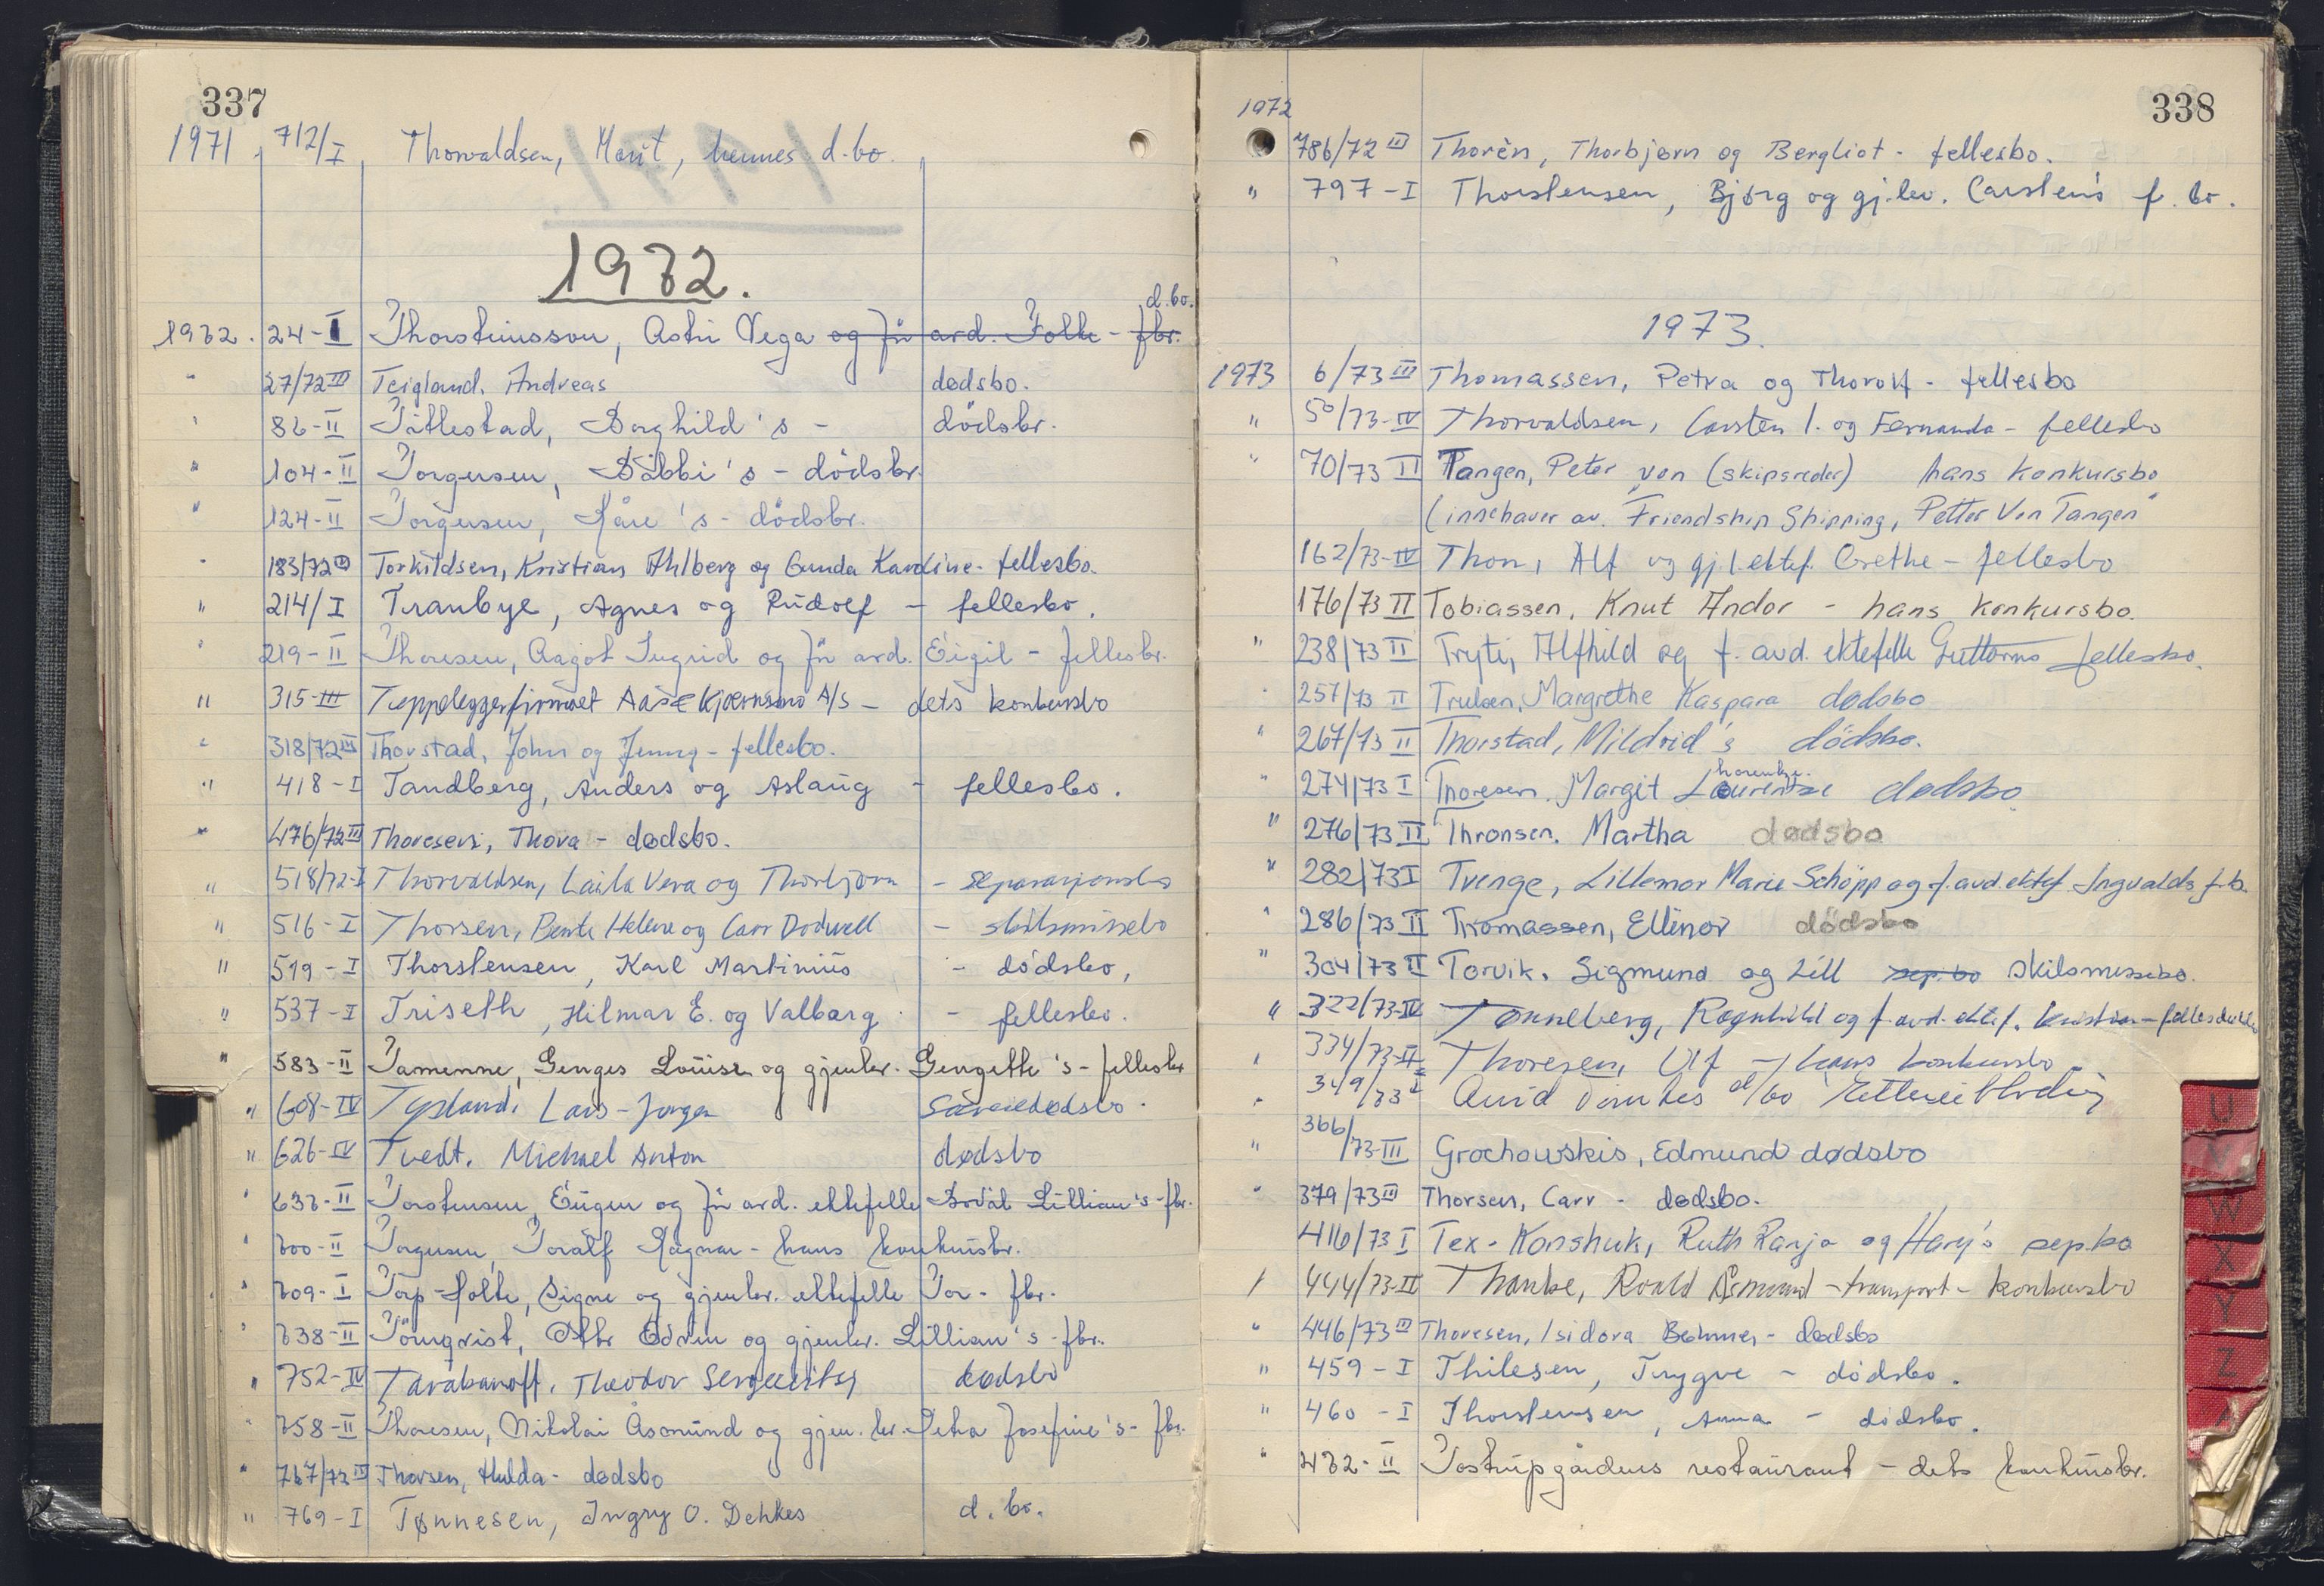 337
1971 712/I Thorvaldsen, Marit, hennes d.bo.
1972.
d.bo.
1972. 24-I Thorsteinsson, Astri Vega og før avd. Folke - fbr.
" 27/72 III Teigland. Andreas dødsbo.
" 86-II Titlestad, Borghild's - dödsbr.
" 104-II Torgersen, Bibbi's - dödsbr.
" 124-II Torgersen, Kåre's - dödsbr.
" 183/72 Torkildsen, Kristian Ahlberg og Gunda Karoline - fellesbo.
" 214/I Tranbye, Agnes og Rudolf - fellesbo.
" 219-II Thoresen, Aagot Ingrid og før avd. Eigil - fellesbr.
" 315-III Teppeleggerfirmaet Aase Kjærnsmo A/S - dets konkursbo
" 318/72 III Thorstad, John og Jenny - fellesbo.
" 418-I Tandberg, Anders og Aslaug - fellesbo.
" 476/72 III Thoresen, Thora - dødsbo.
" 518/72-I Thorvaldsen, Laila Vera og Thorbjørn - separasjonsbo
" 516-I Thorsen, Bente Helene og Carr Dodwell - skilsmissebo
" 519-I Thorstensen, Karl Martinius - dödsbo,
" 537-I Triseth, Hilmar E. og Valborg - fellesbo.
" 583-II Tamenne, Genges Louise og gjenlev. Gengette's - fellesbr
" 608-IV Tysland. Lars-Jørgen særeiedødsbo.
" 626-IV Tvedt. Michael Anton dødsbo
" 637-II Torstensen, Eugen og før avd. ektefelle Bodil Lillian's - fbr.
" 700-II Torgersen, Toralf Ragnar - hans konkursbr.
" 709-I Torp-Holte, Signe og gjenlev. ektefelle Tor - fbr.
" 738-II Törnqvist, Edvin og gjenlev. Lillian's - fbr.
" 752-IV Tarabanoff. Theodor dødsbo
" 758-II Thoresen, Nikolai Åsmund og gjen.lev. Petra Josefine's - fbr.
" 767/72 II Thorsen, Hulda - dødsbo
" 769-I Tønnesen, Ingry O. Dehkes d.bo.
338
1972
786/72 III Thorèn, Thorbjørn og Bergliot - fellesbo.
" 797-I Thorstensen, Bjørg og gj.lev. Carsten's f.bo.
1973.
1973 6/73 III Thomassen, Petra og Thorolf - fellesbo
" 50/73-IV Thorvaldsen, Carsten I. og Fernanda - fellesbo
" 70/73 II Tangen, Peter von (skipsreder) hans konkursbo
(innehaver av Friendship Shipping, Petter Von Tangen"
162/73-IV Thon, Alf og gj.l. ektef. Grethe - fellesbo
176/73 II Tobiassen, Knut Andor - hans konkursbo.
" 238/73 II Tryti, Alfhild og f. avd. ektefelle Guttorms fellesbo.
" 257/73 II Trulsen, Margrethe Kaspara dødsbo
" 267/73 II Thorstad, Mildrid's dödsbo.
" 274/73 I Thoresen. Margit dødsbo
" 276/73 II Thronsen. Martha dødsbo
" 282/73 I Tvenge, Lillemor Marie Schöpp og f. avd. ektef. Ingvalds f.b.
" 286/73 II Thomassen, Ellinor dödsbo
" 304/73 II Torvik, Sigmund og Lill sep.bo skilsmissebo.
" 322/73-IV Tønneberg, Ragnhild og f. avd. ektef. Kristian -
" 334/73-II Thoresen, Ulf - hans konkursbo
" 349/73 I d/bo
" 366/73-III Grochowskis, Edmund dødsbo
" 379/73 III Thorsen, Carr - dødsbo.
416/73 I Tex-Konshuk, Ruth Ranja og Hary's sep.bo
" 444/73-II Thanke, Roald Åsmund - transport - konkursbo
" 446/73 III Thoresen, Isidora Bohmer - dødsbo
" 459-I Thilesen, Trygve - dödsbo.
" 460-I Thorstensen, Anna - dödsbo.
" 472-II Tostrupgårdens restaurant - dets konkursbr.
U
V
W
X
Y
Z